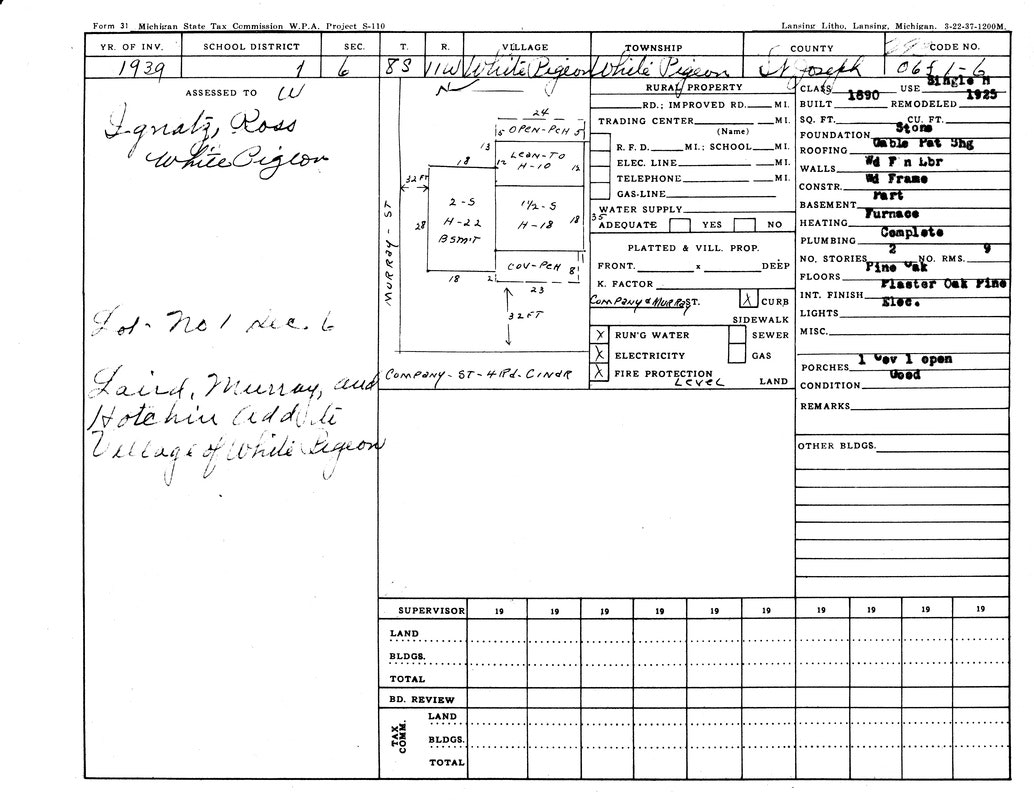 Form 31 Michigan State Tax Commission W.P.A. Project S-110
Lansing Litho, Lansing, Michigan. 3-22-37-1200M.
YR. OF INV. SCHOOL DISTRICT SEC. T. R. VILLAGE TOWNSHIP COUNTY CODE NO.
1939 1 6 8S 11W White Pigeon White Pigeon St Joseph
ASSESSED TO W
Ignatz, Ross
White Pigeon
Lot- No 1 Sec. 6
Laird, Murray, and
Hotchin Add. to
Village of White Pigeon
N
24
5 OPEN-PCH 5
13
LEAN-TO
H-10
12 12
18
32 FT
2-S
H-22
BSM'T
28
18
1 1/2-S
H-18
18
COV-PCH 8
2
23
32 FT
MURRAY-ST
COMPANY-ST-4 Rd-CINDR
RURAL PROPERTY
RD.; IMPROVED RD. MI.
TRADING CENTER MI.
(Name)
R. F. D. MI.; SCHOOL MI.
ELEC. LINE MI.
TELEPHONE MI.
GAS-LINE
WATER SUPPLY
35
ADEQUATE YES NO
PLATTED & VILL. PROP.
FRONT. x DEEP
K. FACTOR
Company & Murray ST. X CURB
SIDEWALK
X RUN'G WATER SEWER
X ELECTRICITY GAS
X FIRE PROTECTION
LEVEL LAND
CLASS USE Single H
BUILT 1890 REMODELED 1925
SQ. FT. CU. FT.
FOUNDATION Stone
ROOFING Gable Pat Shg
WALLS Wd F n Lbr
CONSTR. Wd Frame
BASEMENT Part
HEATING Furnace
PLUMBING Complete
NO. STORIES 2 NO. RMS. 9
FLOORS Pine Oak
INT. FINISH Plaster Oak Pine
LIGHTS Elec.
MISC.
PORCHES 1 Cov 1 open
CONDITION Good
REMARKS
OTHER BLDGS.
SUPERVISOR 19 19 19 19 19 19 19 19 19 19
LAND
BLDGS.
TOTAL
BD. REVIEW
TAX COMM.
LAND
BLDGS.
TOTAL